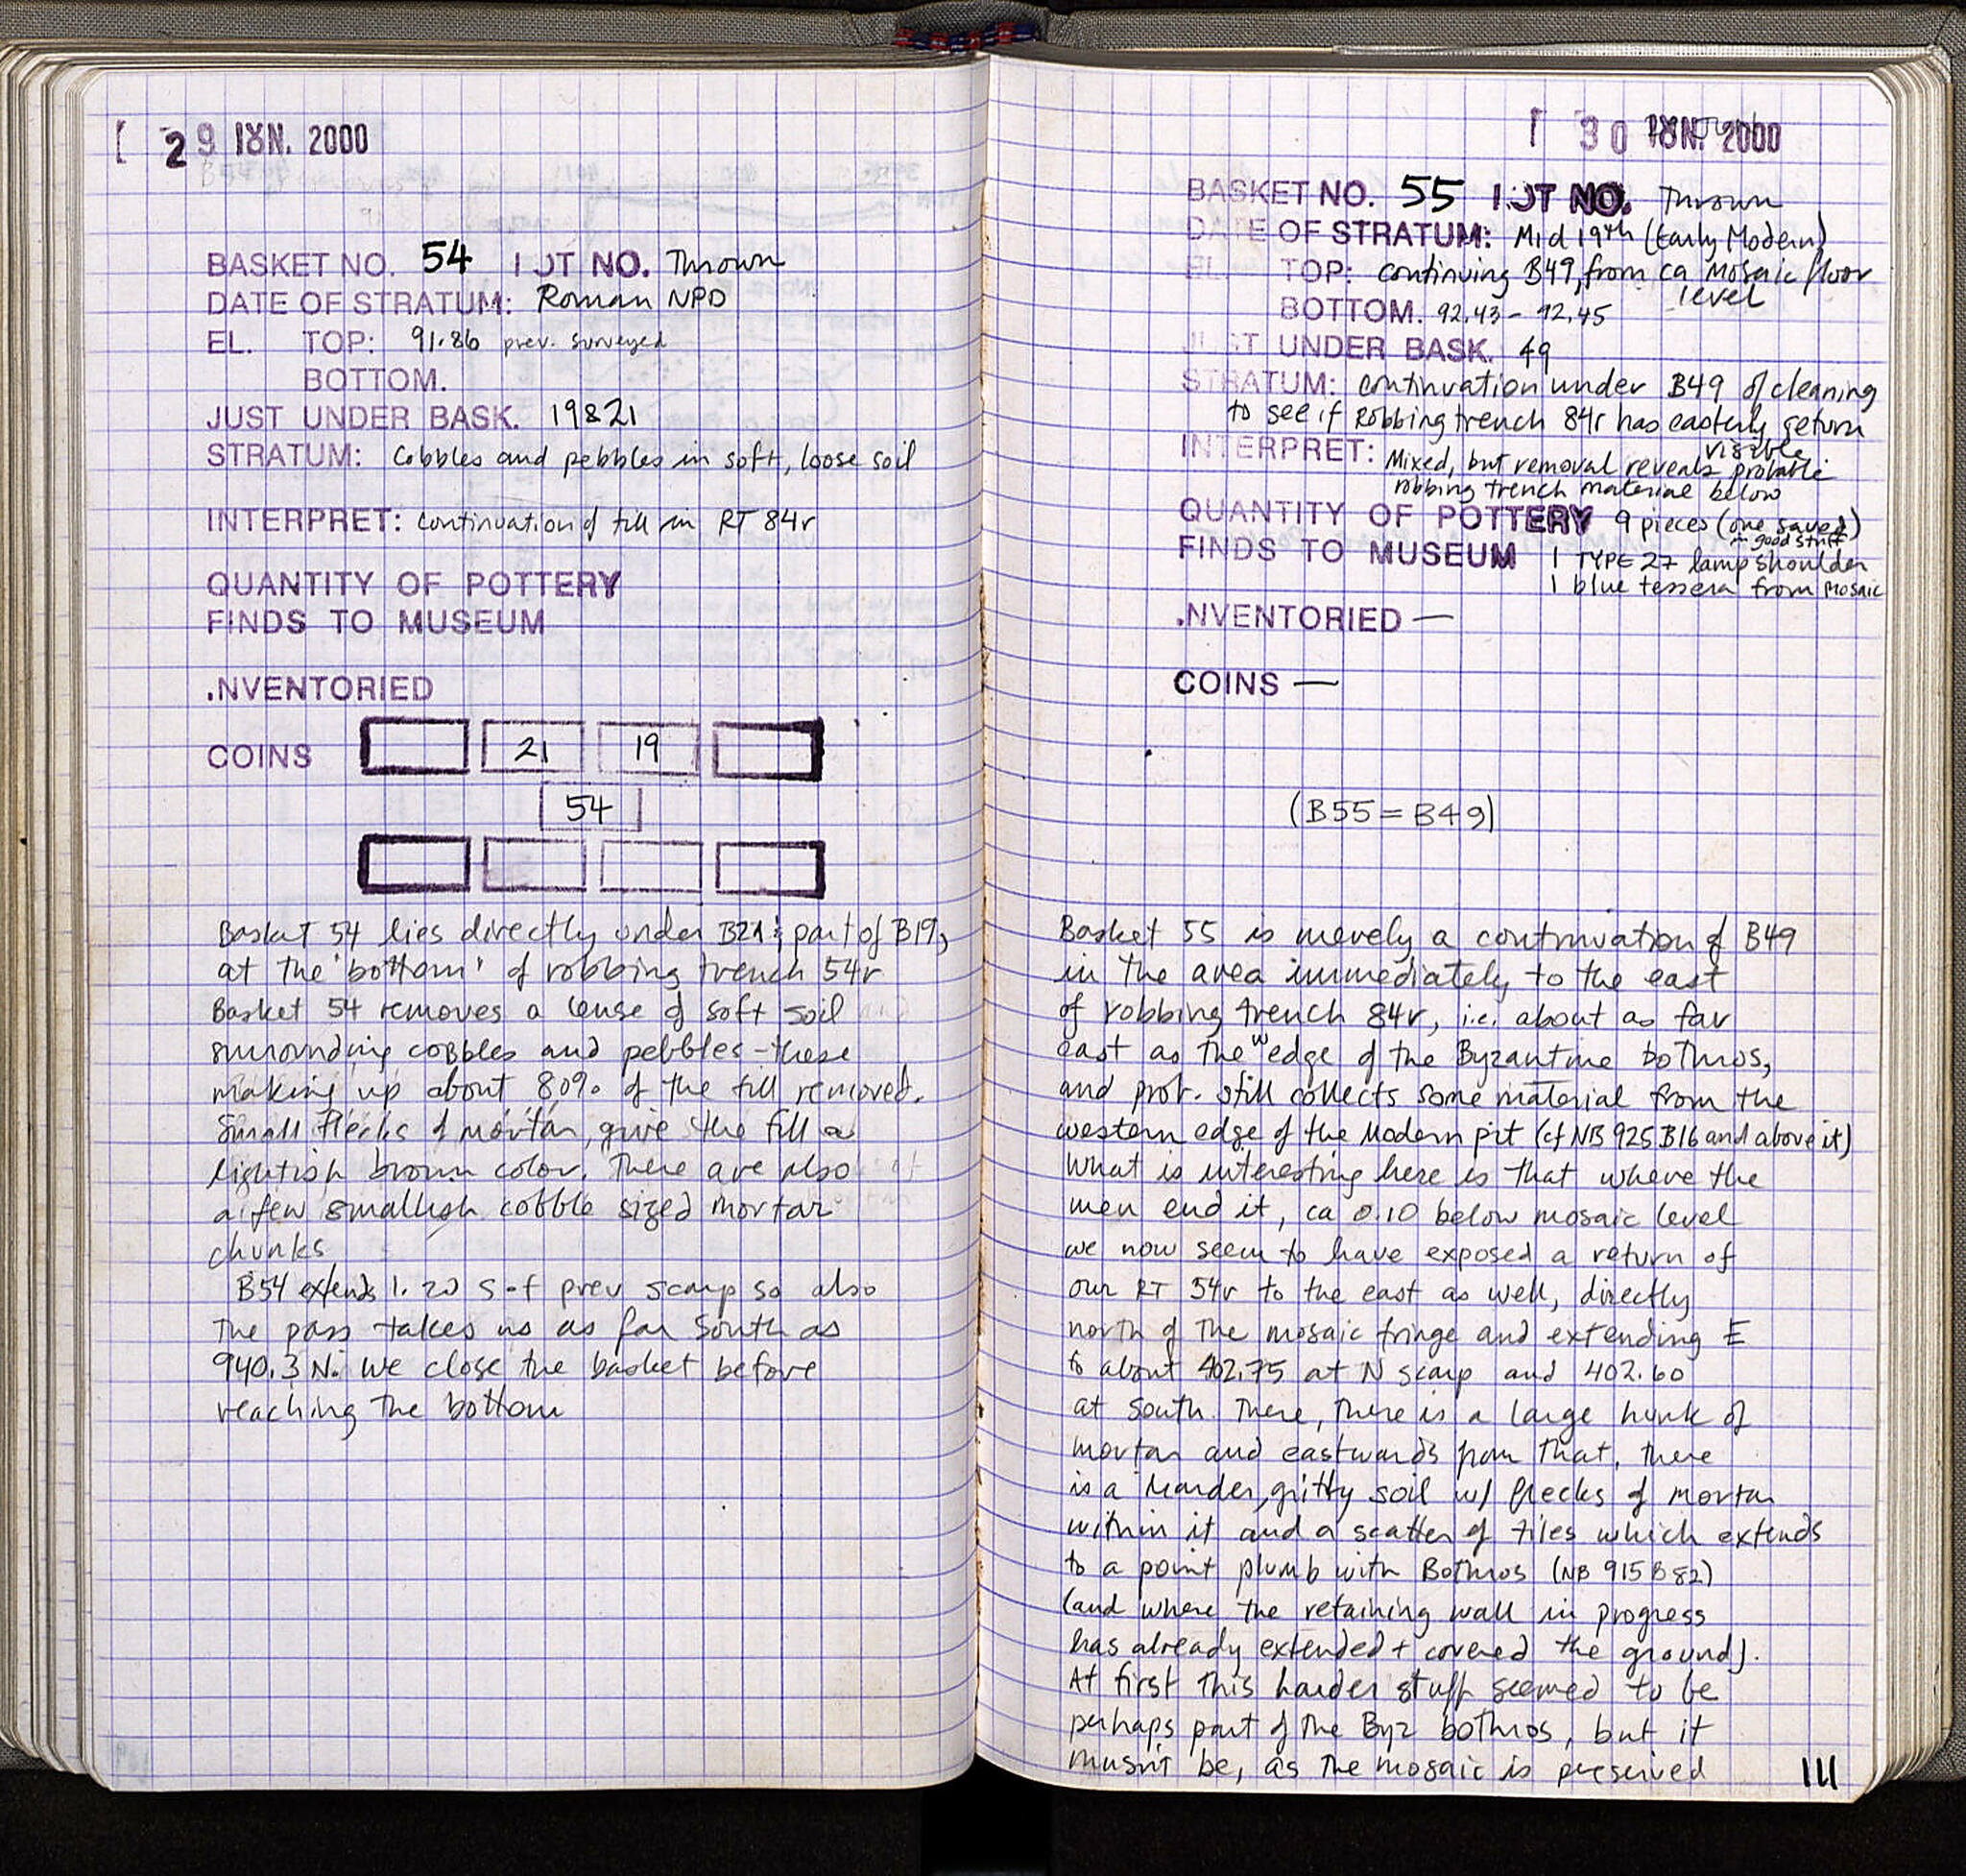 29 ΙΟΥΝ. 2000
BASKET NO. 54 LOT NO. Thrown
DATE OF STRATUM: Roman NPD
EL. TOP: 91.86 prev. surveyed
BOTTOM.
JUST UNDER BASK. 19&21
STRATUM: Cobbles and pebbles in soft, loose soil
INTERPRET: continuation of fill in RT 84r
QUANTITY OF POTTERY
FINDS TO MUSEUM
.NVENTORIED
21 19
COINS
54
Basket 54 lies directly under B21 & part of B19,
at the 'bottom' of robbing trench 54r
Basket 54 removes a lense of soft soil
surrounding cobbles and pebbles - these
making up about 80% of the fill removed.
Small flecks of mortar, give the fill a
lightish brown color. There are also
a few smallish cobble sized mortar
chunks
B54 extends 1.20 S of prev scarp so also
The pass takes us as far South as
940.3 N. We close the basket before
reaching the bottom
30 ΙΟΥΝ. 2000
BASKET NO. 55 LOT NO. Thrown
DATE OF STRATUM: Mid 19th (Early Modern)
EL. TOP: continuing B49, from ca Mosaic floor
level
BOTTOM. 92.43 - 92.45
JUST UNDER BASK. 49
STRATUM: continuation under B49 of cleaning
to see if Robbing trench 84r has easterly return
visible
INTERPRET: Mixed, but removal reveals probable
robbing trench material below
QUANTITY OF POTTERY 9 pieces (one saved)
~ good stuff
FINDS TO MUSEUM 1 TYPE 27 lamp shoulder
1 blue tessera from Mosaic
.NVENTORIED —
COINS —
(B55 = B49)
Basket 55 is merely a continuation of B49
in the area immediately to the east
of robbing trench 84r, i.e. about as far
east as the W edge of the Byzantine bothros,
and prob. still collects some material from the
western edge of the Modern pit (cf NB 925 B16 and above it)
What is interesting here is that where the
men end it, ca 0.10 below mosaic level
we now seem to have exposed a return of
our RT 54r to the east as well, directly
north of the mosaic fringe and extending E
to about 402.75 at N scarp and 402.60
at South. There, there is a large hunk of
mortar and eastwards from that, there
is a harder, gritty soil w/ flecks of mortar
within it and a scatter of tiles which extends
to a point plumb with Bothros (NB 915 B82)
(and where the retaining wall in progress
has already extended + covered the ground).
At first this harder stuff seemed to be
perhaps part of the Byz bothros, but it
musn't be, as the mosaic is preserved
111